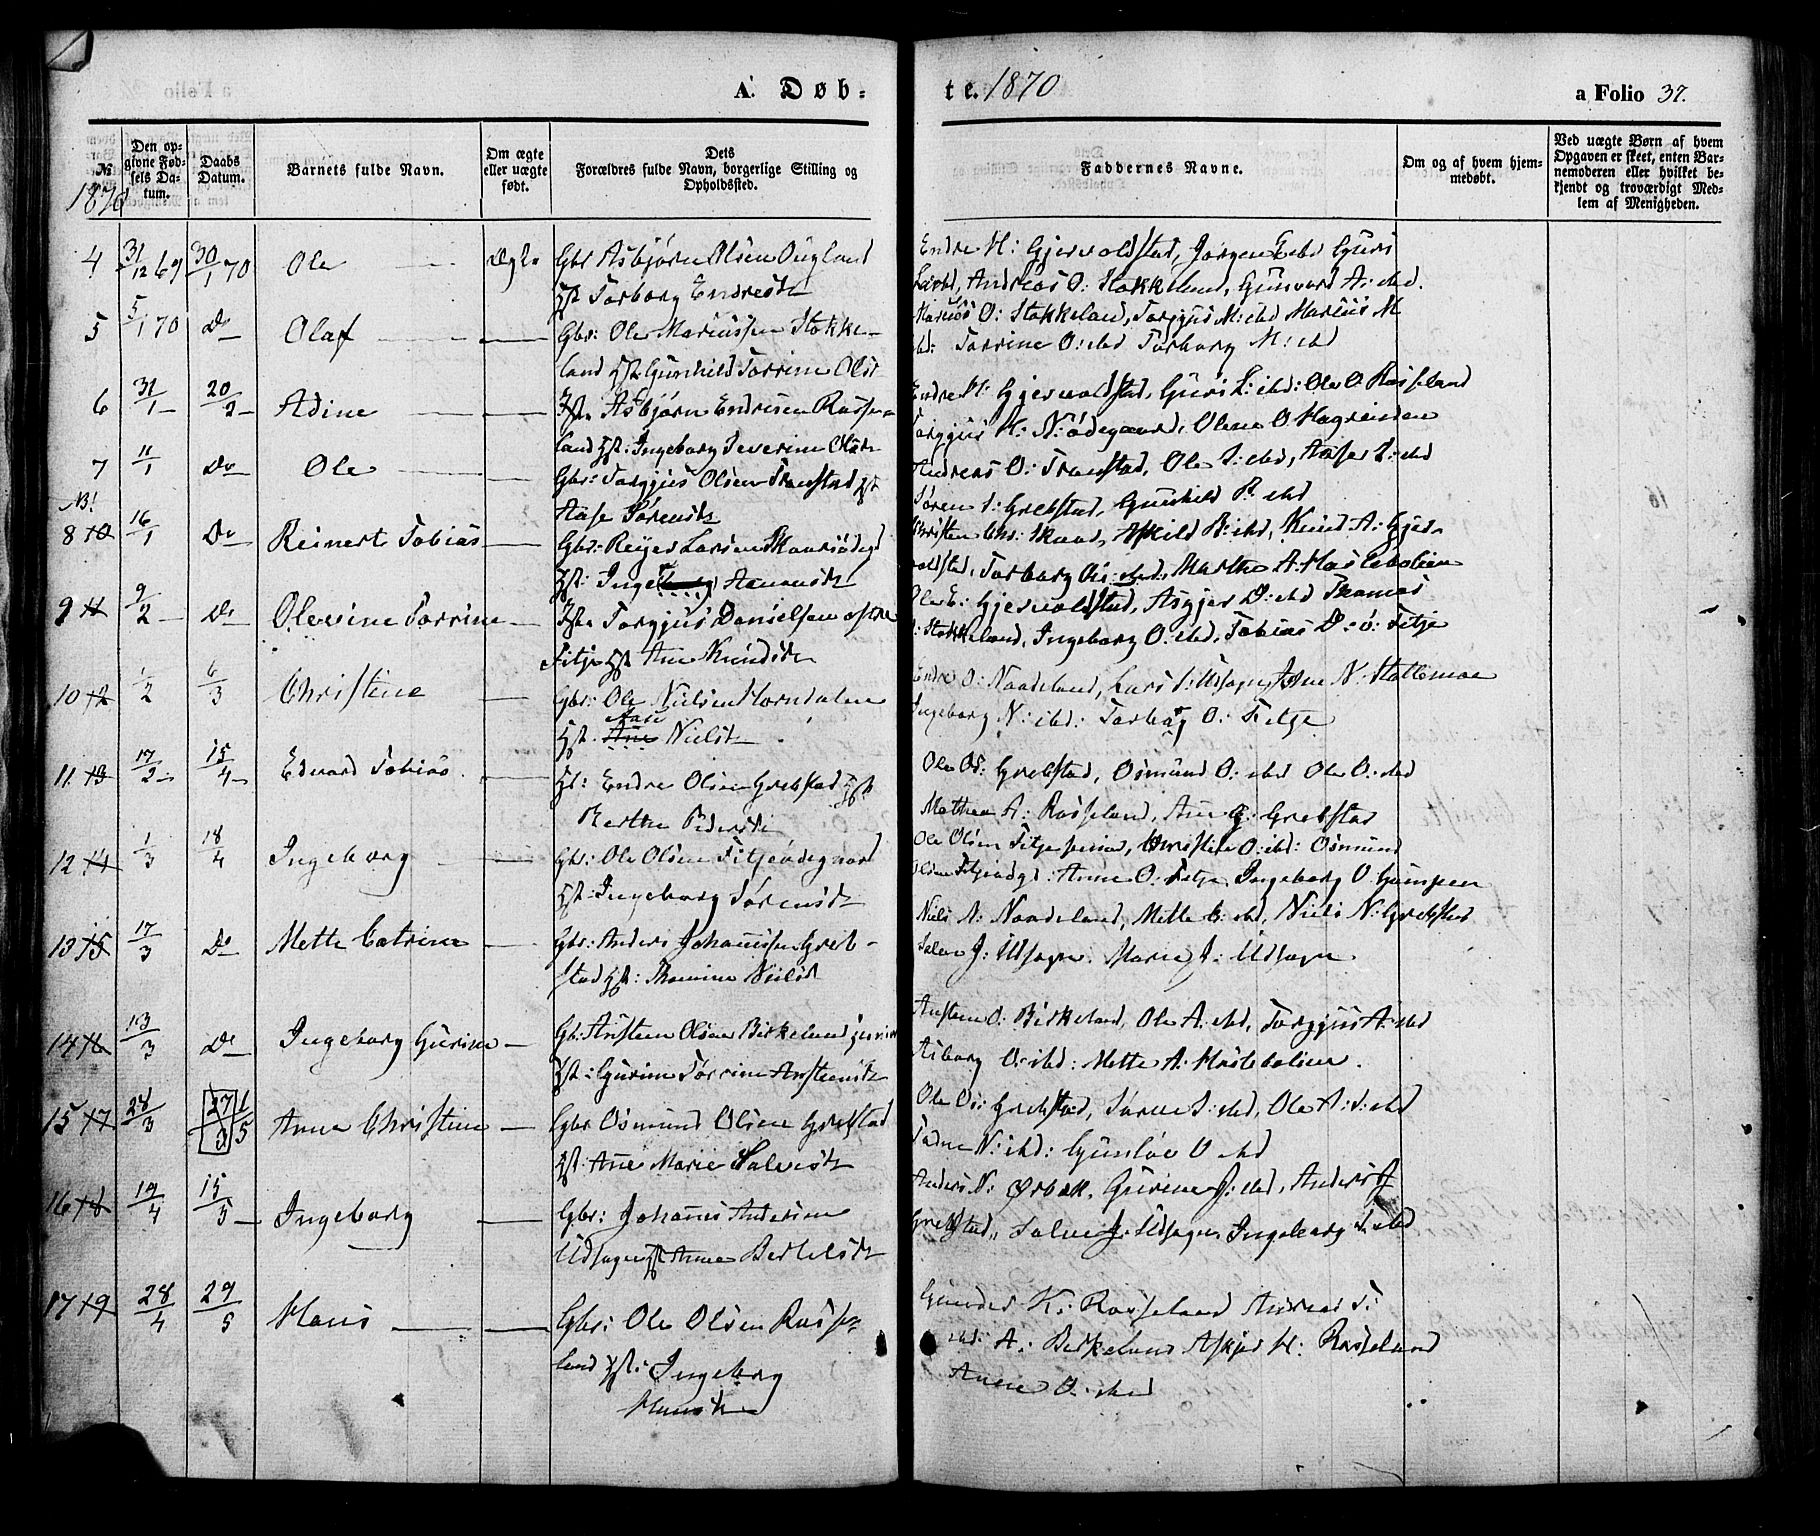 A. Døb=
te. 1870
a Folio 37.
No.
1870
Den op=
givne Fød=
sels Da=
tum.
Daabs
Datum.
Barnets fulde Navn.
Om ægte
eller uægte
født.
Dets
Forældres fulde Navn, borgerlige Stilling og
Opholdssted.
Faddernes Navne.
Om og af hvem hjem=
medøbt.
Ved uægte Børn af hvem
Opgaven er skeet, enten Bar=
nemoderen eller hvilket be=
kjendt og troværdigt Med=
lem af Menigheden.
4 31/12 69 30/1 70 Ole Ægte Gbr Asbjørn Olsen Øugland
Hst Torborg Endresdt
Endre H: Gjervoldstad, Jørgen ibd Guri
ibd, Andreas O: Stokkeland, Gunvord A: ibd.
5 5/1 70 Do Olaf — Gbr: Ole Mariussen Stokke-
land Hst Gunhild Torrine Olsdt
Marius O: Stokkeland, Torgjus M: ibd Marius M
ibd: Torrine O: ibd Torborg M: ibd
6 31/1 — 20/2 — Adine — Asbjørn Endresen Rosse-
land Hst: Ingeborg Severine Olsdt
Endre H: Gjervoldstad, Guri L: ibd: Ole O Rosseland
Torgjus K: N: Ødegaard, Olene O Hagrinden
7 11/1 Do Ole — Gbr: Torgjus Olsen Tronstad Hst
Aase Sørensdt
Andreas O: Tronstad, Ole S: ibd, Aase L: ibd
Søren S: Grebstad, Gunhild R: ibd
NB!
8 10 16/1 Do Reinert Tobias — Gbr: Reijer Larsen Skaarsødegd
Hst: Inge Aanensdt
Christen Chr: Skaar, Askild R: ibd, Knud A: Gjer-
voldstad, Torborg Chr: ibd, Marthe A: Haslebolien
9 11 9/2 — Do Olevine Torrine — Torgjus Danielsen østre
Fitje Hst Ane Knudsdt
Ole E: Gjervoldstad, Asgjer D: ibd Thomas
: Stokkeland, Ingeborg O: ibd, Tobias D: ø: Fitje
10 12 1/2 6/3 Christine — Gbr: Ole Nielsen Horndalen
Aase
Hst. Ane Nielsdt
Endre O: Naadeland, Lars S: Udsogn, Ane N: Stallemoe
Ingeborg N: ibd: Torborg O: Fitje
11 13 17/2 — 15/4 — Edvard Tobias — Endre Olsen Grebstad Hst
Berthe Pedersdt
Ole Os: Grebstad, Osmund O: ibd Ole O: ibd
Mathea A: Rosseland, Ane G: Grebstad
12 14 1/3 18/4 Ingeborg — Gbr: Ole Olsen Fitjeødegaard
Hst Ingeborg Sørensdt
Ole Olsen Fitje senior, Christine O: ibd: Osmund
Olsen Fitjeødgd: Anne O: Fitje Ingeborg O Gumpen
13 15 17/3 Do Mette Catrine — Gbr: Anders Johannessen Greb-
stad Hst: Thomine Nielsdt
Niels A: Naadeland, Mette C: ibd, Niels N: Grebstad
Salve J: Udsogn. Marie J: Udsogn
14 16 13/3 Do Ingeborg Gurine — Gbr: Ansteen Olsen Birkeland junior
Hst: Gurine Torrine Ansteensdt
Ansteen O: Birkeland, Ole A: ibd, Torgjus A: ibd
Asborg O: ibd: Mette A: Haslebolien.
15 17 28/3 27/3 1/5 Anne Christine — Gbr Osmund Olsen Grebstad
Hst: Ane Marie Salvesdt
Ole Os: Grebstad, Søren S: ibd, Ole A: S: ibd
Tadne N: ibd: Gunløe O ibd
16 18 19/4 15/5 — Ingeborg — Gbr: Johannes Andersen
Udsogn Hst Anne Bertelsdt
Anders N: Ørbæk, Gurine J: ibd, Anders J
Grebstad, Salve J: Udsogn, Ingeborg T: ibd
17 19 28/4 29/5 Hans — Gbr: Ole Olsen Rosse-
land Hst: Ingeborg
Hansdt
Gunder K: Rosseland Andreas T:
ibd: A: Birkeland Askjer H: Rosseland
Anne O: ibd